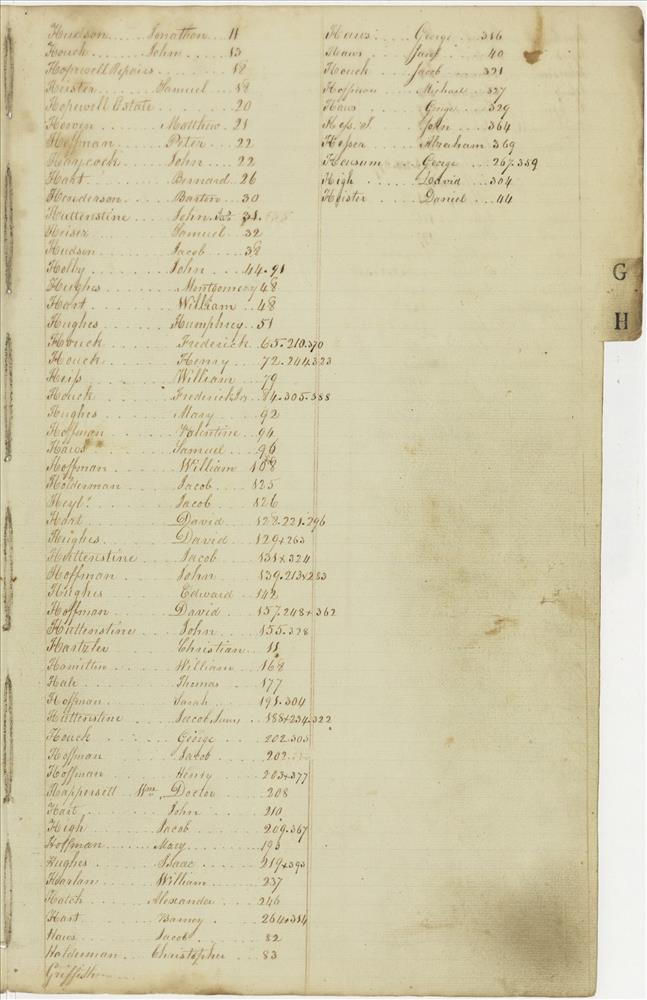 Hudson Jonathon 11
Houck John 13
Hopewell Repairs 18
Heister Samuel 18
Hopewell Estate 20
Hoven Matthew 21
Hoffman Peter 22
Haycock John 22
Hart Bernard 26
Henderson Barton 30
Huttenstine John 31
Heiser Samuel 32
Hudson Jacob 38
Holby John 44.91
Hughes Montgomery 48
Hart William 48
Hughes Humphrey 51
Houck Frederick 65.210.370
Houck Henry 72.244.323
Heiss William 79
Houck Frederick Jr 84.305.388
Hughes Mary 92
Hoffman Valentine 94
Haws Samuel 96
Hoffman William 108
Holderman Jacob 125
Heyl Jacob 126
Hart David 128.221.296
Hughes David 129+263
Huttenstine Jacob 131+324
Hoffman John 139.213+283
Hughes Edward 142
Hoffman David 157.248+362
Huttenstine John 155.328
Hartzler Christian 11
Hamilton William 168
Hale Thomas 177
Hoffman Sarah 191.304
Huttenstine Jacob, Junr 188+234.322
Houck George 202.303
Hoffman Jacob 202
Hoffman Henry 203+377
Happersett Wm Doctor 208
Hart John 210
High Jacob 209.367
Hoffman Mary 195
Hughes Isaac 219+393
Harlan William 237
Hatch Alexander 246
Hart Barney 264+314
Haws Jacob 82
Halderman Christopher 83
Griffith
Haws George 316
Haws 40
Houck Jacob 321
Hoffman Michael 327
Haws George 329
Hess. S. John 364
Hesser Abraham 369
Heusum George 267.359
High David 304
Heister Daniel 44
G
H